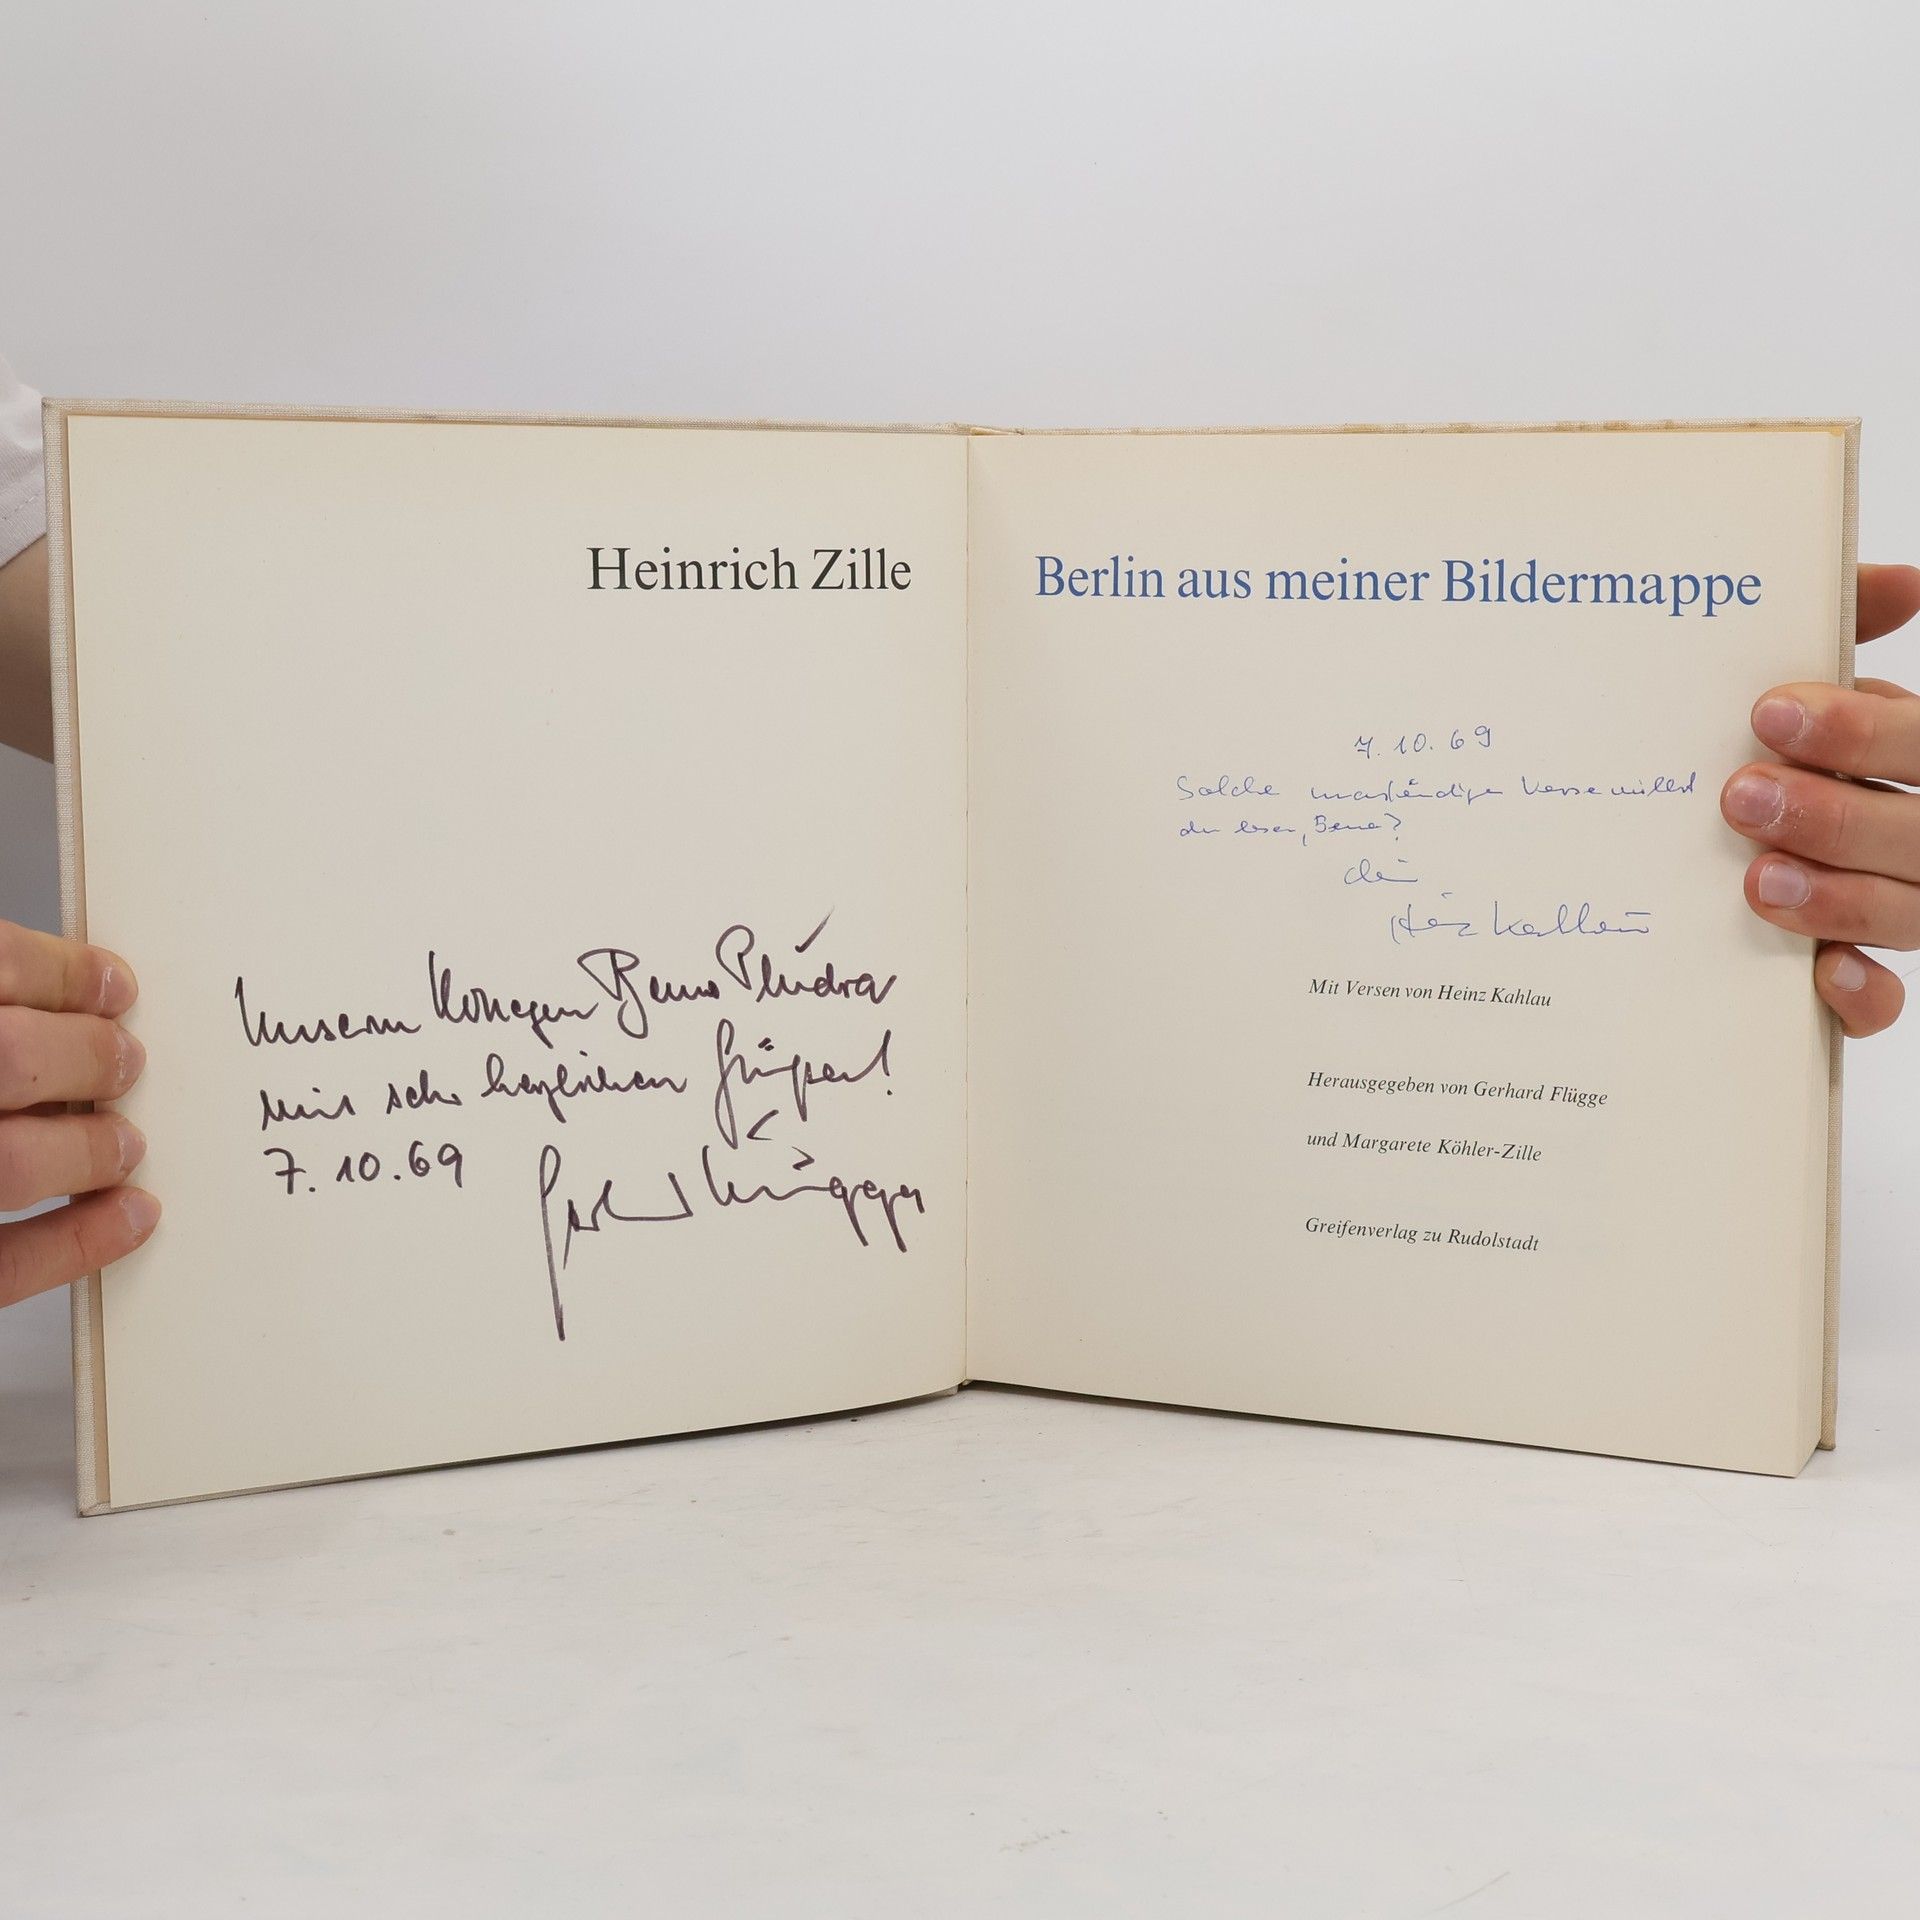 Heinrich Zille
Unserm Kollegen Benno Pludra
mit sehr herzlichen Grüßen!
7.10.69 Gerhard Flügge
Berlin aus meiner Bildermappe
7.10.69
Solche unanständigen Verse willst
du lesen, Benno?
dein
Heinz Kahlau
Mit Versen von Heinz Kahlau
Herausgegeben von Gerhard Flügge
und Margarete Köhler-Zille
Greifenverlag zu Rudolstadt